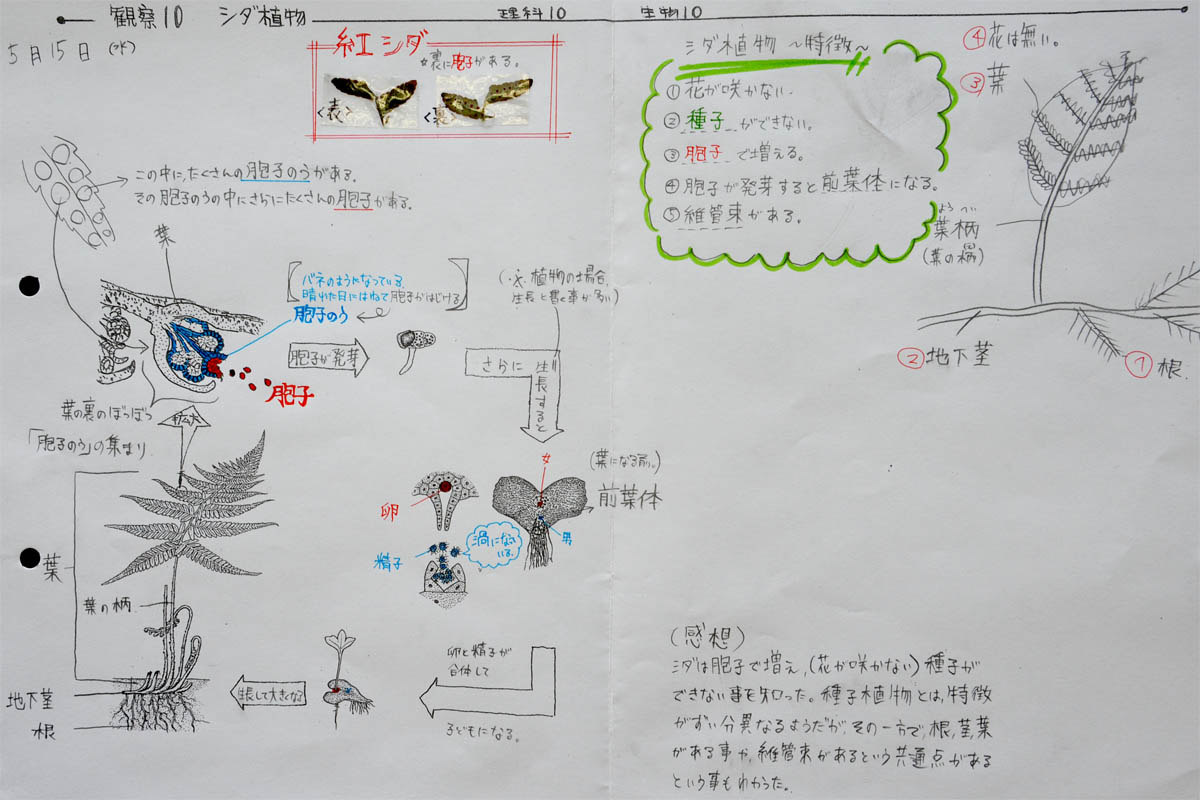 観察10 シダ植物
理科10
生物10
5月15日(水)
紅シダ
☆裏に胞子がある。
<表>
<裏>
この中に、たくさんの胞子のうがある。
その胞子のうの中にさらにたくさんの胞子がある。
葉
バネのようになっている。
晴れた日にはねて胞子がはじける
胞子のう
胞子
葉の裏のぼつぼつ
「胞子のう」の集まり
拡大
胞子が発芽
(※植物の場合、
生長と書く事が多い)
さらに
生長すると
(葉になる前。)
前葉体
女
男
卵
精子
渦になっている。
卵と精子が
合体して
子どもになる。
生長して大きくなる
葉
葉の柄
地下茎
根
シダ植物 ~特徴~
①花が咲かない。
②種子ができない。
③胞子で増える。
④胞子が発芽すると前葉体になる。
⑤維管束がある。
④花は無い。
③葉
ようへい
葉柄
(葉の柄)
②地下茎
①根
(感想)
シダは胞子で増え、(花が咲かない)種子が
できない事を知った。種子植物とは、特徴
がずい分異なるようだが、その一方で、根,茎,葉
がある事や、維管束があるという共通点がある
という事もわかった。